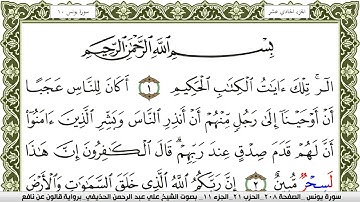 الجزء الحادي عشر
سورة يونس ١٠
بِسْمِ اللَّهِ الرَّحْمَٰنِ الرَّحِيمِ
الٓرۚ تِلْكَ ءَايَٰتُ الْكِتَٰبِ الْحَكِيمِ ١ أَكَانَ لِلنَّاسِ عَجَبًا
أَنْ أَوْحَيْنَا إِلَىٰ رَجُلٍ مِّنْهُمْ أَنْ أَنذِرِ النَّاسَ وَبَشِّرِ الَّذِينَ ءَامَنُوا
أَنَّ لَهُمْ قَدَمَ صِدْقٍ عِندَ رَبِّهِمْ قَالَ الْكَٰفِرُونَ إِنَّ هَٰذَا
لَسِحْرٌ مُّبِينٌ ٢ إِنَّ رَبَّكُمُ اللَّهُ الَّذِي خَلَقَ السَّمَٰوَٰتِ وَالْأَرْضَ
سورة يونس الصفحة ٢٠٨ الحزب ٢١ الجزء ١١ بصوت الشيخ علي عبد الرحمن الحذيفي برواية قالون عن نافع